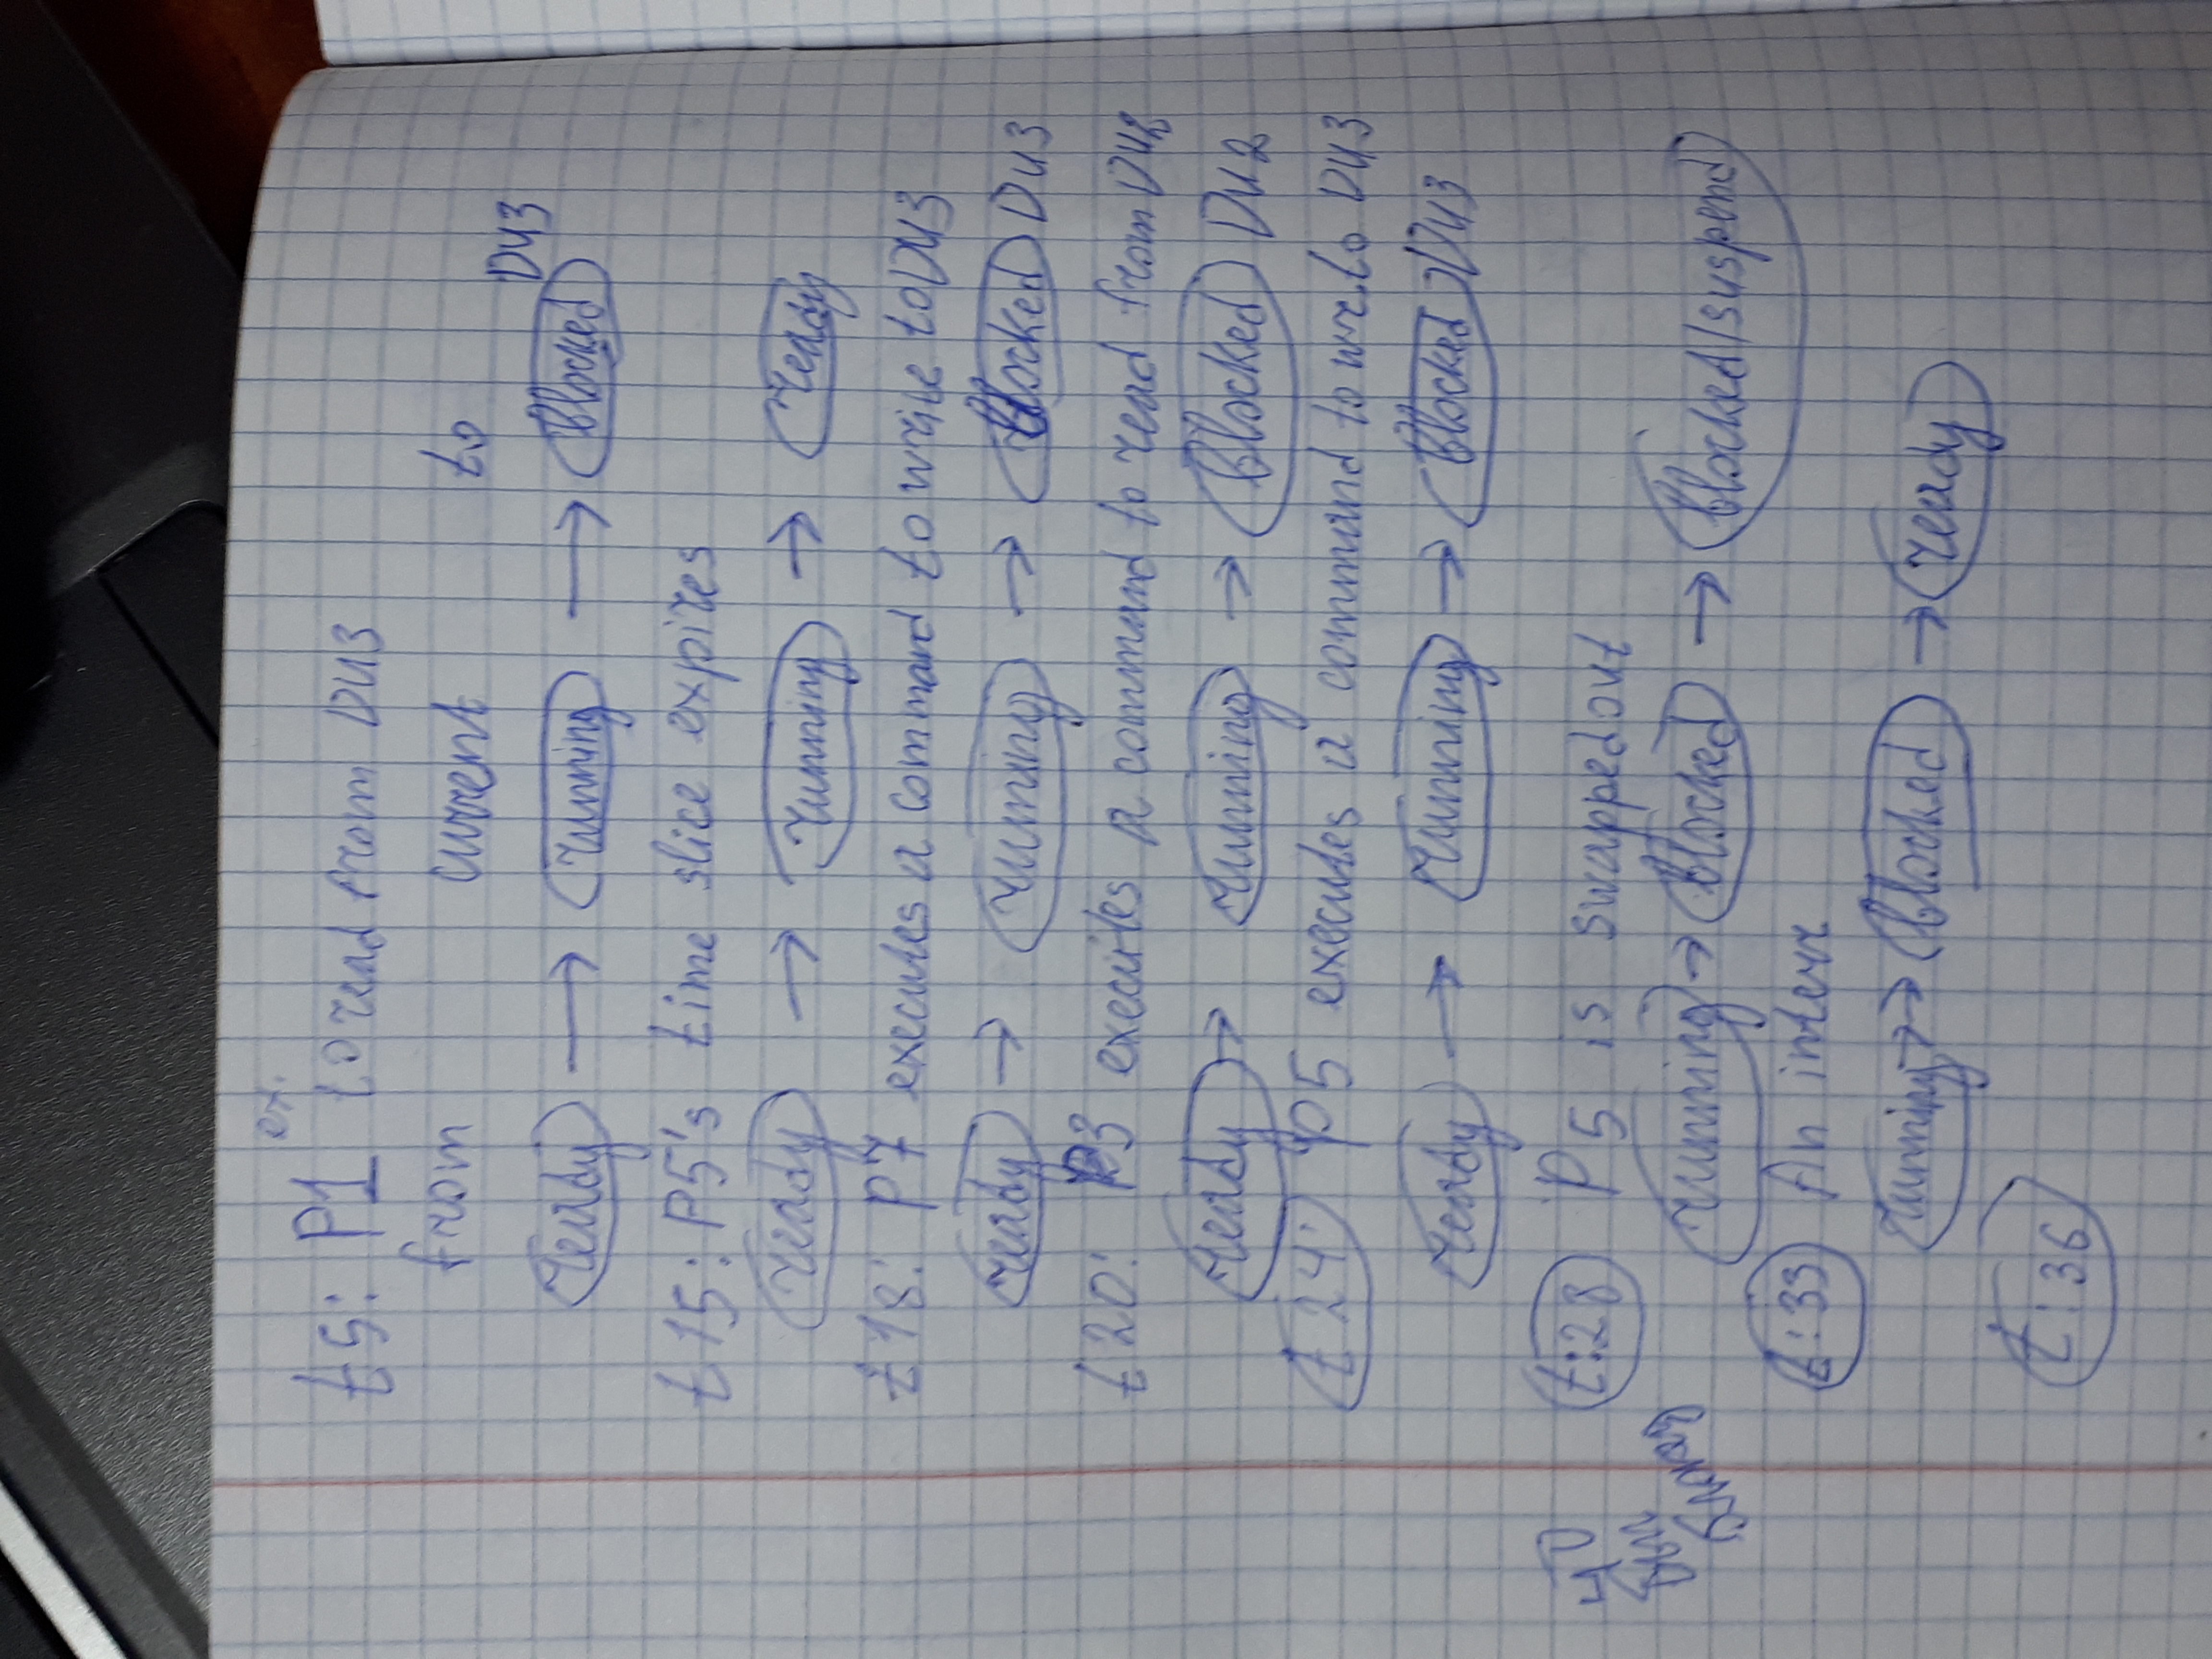 ex.
t5: P1 to read from DU3
from current to
DU3
ready → running → blocked
t15: P5's time slice expires
ready → running → ready
t18: P7 executes a command to write to DU3
ready → running → blocked DU3
t20: P3 executes a command to read from DU2
ready → running → blocked DU2
t24: P5 executes a command to wr. to DU3
ready → running → blocked DU3
t:28 P5 is swapped out
running → blocked → blocked/suspend
t:33 An interr
running → → blocked → ready
t:36